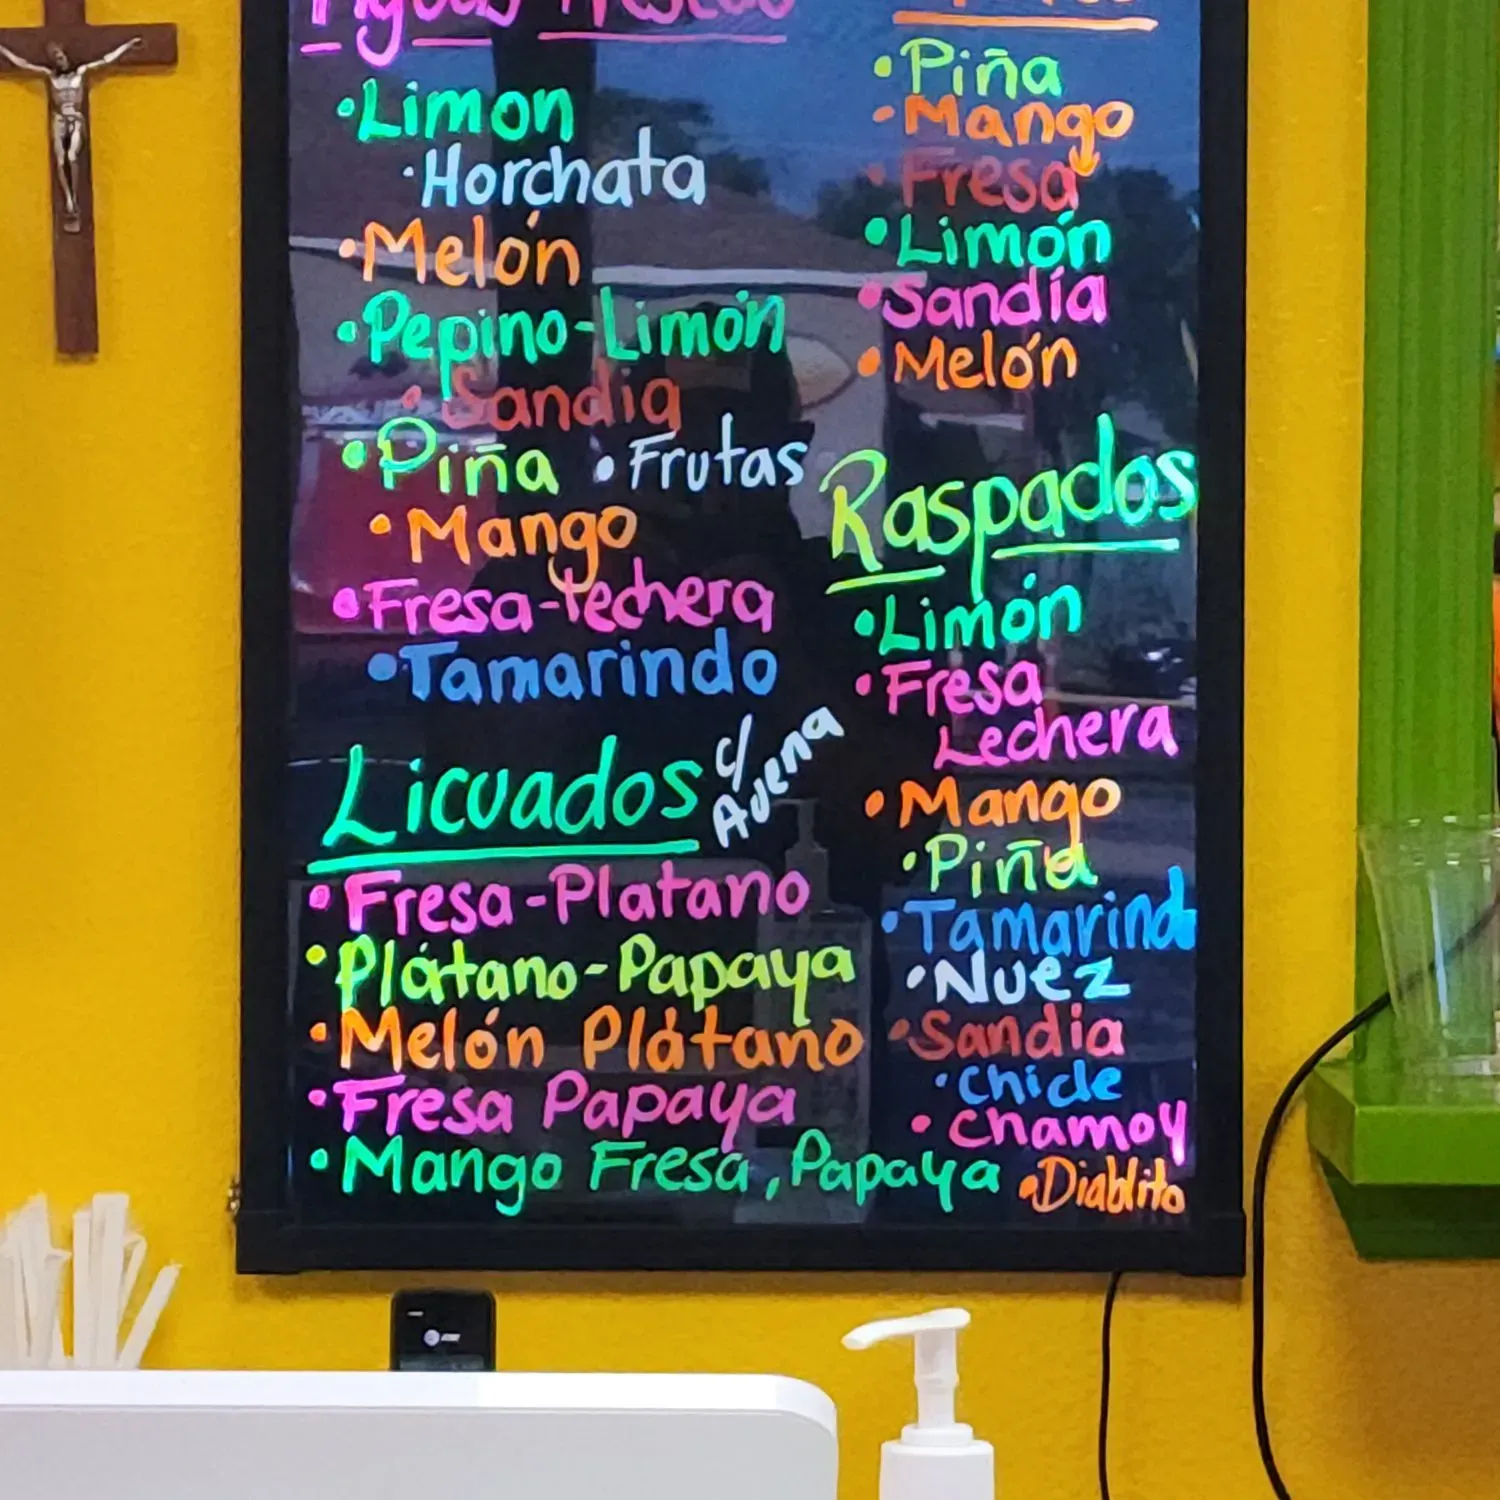 Aguas Frescas
•Limon
•Horchata
•Melón
•Pepino-Limón
•Sandia
•Piña •Frutas
•Mango
•Fresa-lechera
•Tamarindo
Licuados c/
Avena
•Fresa-Platano
•Plátano-Papaya
•Melón Plátano
•Fresa Papaya
•Mango Fresa, Papaya
•Piña
•Mango
•Fresa
•Limón
•Sandía
•Melón
Raspados
•Limón
•Fresa
Lechera
•Mango
•Piña
•Tamarindo
•Nuez
•Sandia
•Chicle
•Chamoy
•Diablito